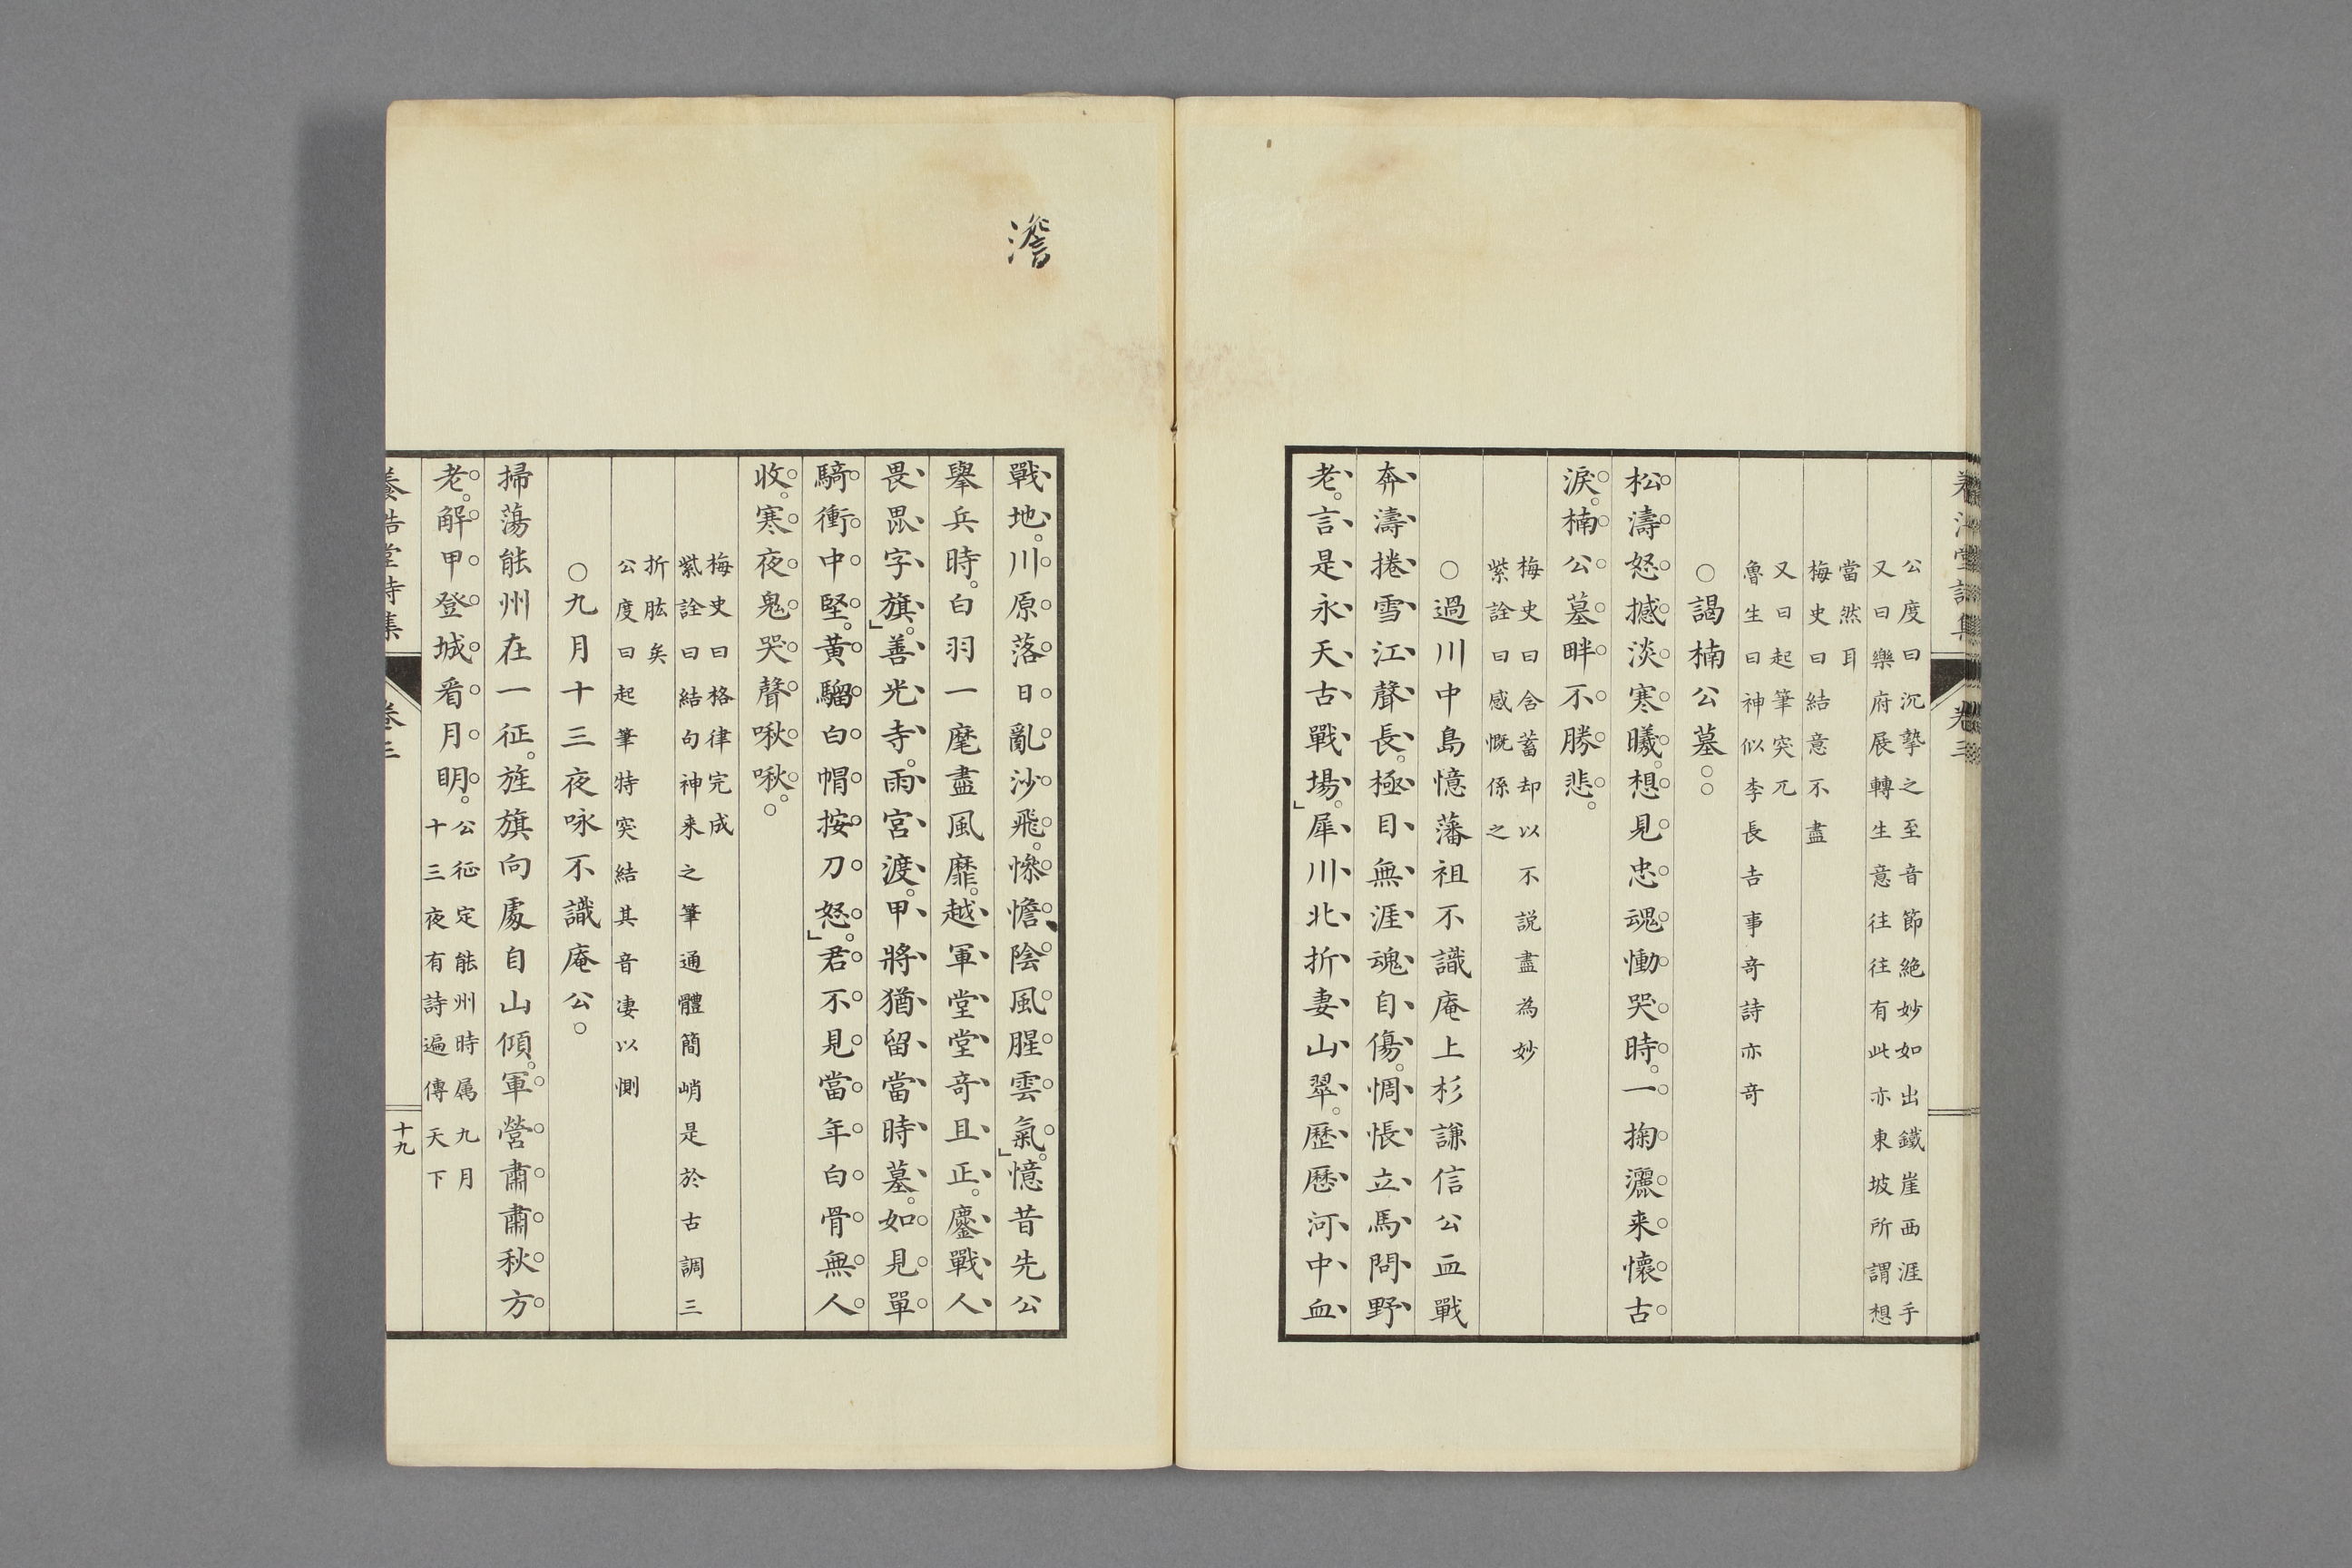 公度曰沉摯之至音節絶妙如出鐵崖西涯手
又曰樂府展轉生意往往有此亦東坡所謂想
當然耳
梅史曰結意不盡
又曰起筆突兀
魯生曰神似李長吉事奇詩亦奇
○謁楠公墓○○
松濤怒撼淡寒曦。想見忠魂慟哭時。一掬灑来懷古
淚。楠公墓畔不勝悲。
梅史曰含蓄却以不説盡為妙
紫詮曰感慨係之
○過川中島憶藩祖不識庵上杉謙信公血戰
奔濤捲雪江聲長。極目無涯魂自傷。惆悵立馬問野
老。言是永天古戰場。」犀川北折妻山翠。歷歷河中血
澹
戰地。川原落日亂沙飛。慘憺陰風腥雲氣。」憶昔先公
舉兵時。白羽一麾盡風靡。越軍堂堂奇且正。鏖戰人
畏毘字旗。」善光寺。雨宮渡。甲將猶留當時墓。如見單
騎衝中堅。黃騮白帽按刀怒。」君不見當年白骨無人
收。寒夜鬼哭聲啾啾。○
梅史曰格律完成
紫詮曰結句神来之筆通體簡峭是於古調三
折肱矣
公度曰起筆特突結其音凄以惻
○九月十三夜咏不識庵公○
掃蕩能州在一征。旌旗向處自山傾。軍營肅肅秋方
老。解甲登城看月明。公征定能州時属九月
十三夜有詩遍傳天下
養浩堂詩集 卷三 十九